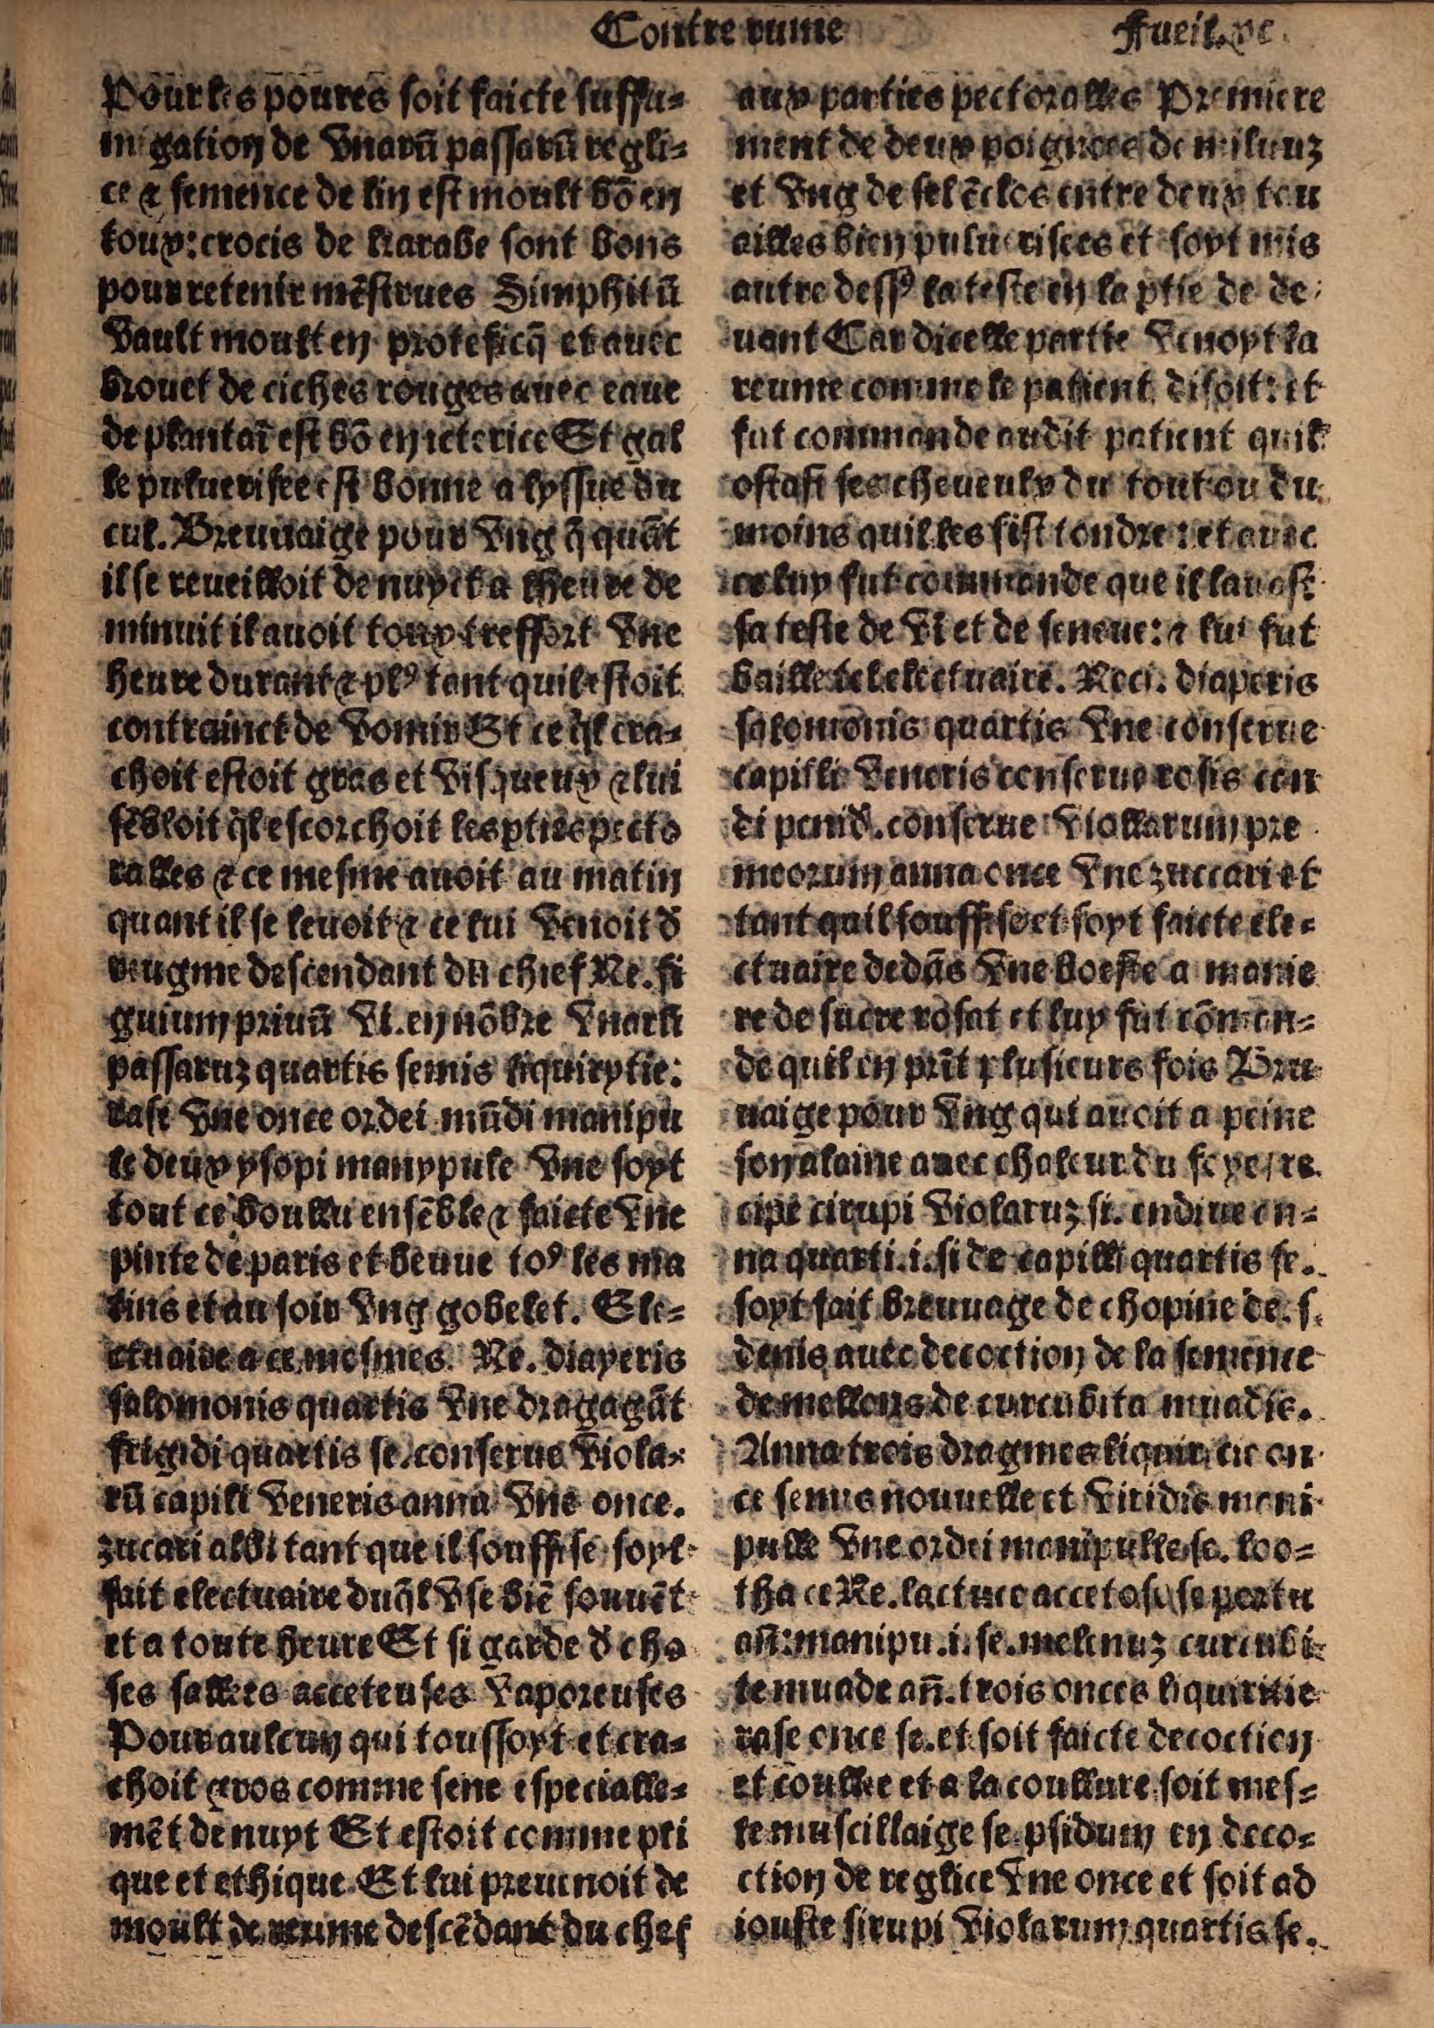 Contre rume
Fueil. xc.
Pour les poures soit faicte suffu-
migation de vnarū passarū regli-
ce & semence de lin est moult bō en
toux: crocis de karabe sont bons
pour retenir mēstrues Simphitū
vault moult en proteficq̄ et auec
brouet de ciches rouges auec eaue
de plantaī est bō en ictericce Et gal
le puluerisee est bonne a lyssue du
cul. Breuuaige pour vng q̄ quāt
il se reueilloit de nuyct a lheure de
minuit il auoit toux tresfort vne
heure durant & plꝰ tant quil estoit
contrainct de vomir Et ce q̄l cra-
choit estoit gras et visqueux & lui
sēbloit q̄l escorchoit les ꝑties pecto
ralles & ce mesme auoit au matin
quant il se leuoit & ce lui venoit d̄
reugme descendant du chief Re. fi
guium priuū vi. en nōbre vnarū
passaruz quartis semis liquirytie:
rasi vne once ordei mūdi manipu
le deux ysopi manypule vne soyt
tout ce boullu ensēble & faicte vne
pinte de paris et beuue toꝰ les ma
tins et au soir vng gobelet. Ele-
ctuaire a ce mesmes. Re. diayeris
salomonis quartis vne dragagāt
frigidi quartis se. conserue viola-
rū capili veneris anna vne once.
zucari albi tant que il souffise soyt
fait electuaire duq̄l vse biē souuēt
et a toute heure Et si garde d̄ cho
ses sallees acceteuses vaporeuses
Pour aulcun qui toussoyt et cra-
choit gros comme sene especialle-
mēt de nuyt Et estoit comme pti
que et ethique Et lui preuenoit de
moult de reume descēdant du chef
aux parties pectoralles Premiere
ment de deux poignees de miluuz
et vng de sel ēclos entre deux tou
ailles bien puluerisees et soyt mis
autre dessꝰ la teste en la ꝑtie de de-
uant Car dicelle partie venoyt la
reume comme le patient disoit: et
fut commande audit patient quil
ostast ses cheueulx du tout ou du
moins quil les fist tondre: et auec
ce luy fut commande que il lauast
sa teste de vi et de seneue: & lui fut
baille tel electuaire. Reci. diaperis
salomonis quartis vne conserue
capilli veneris conserue rosis can
di penid̄. conserue violarum pre
meorum anna once vne zuccari et
tant quil souffise et soyt faicte ele-
ctuaire dedās vne boeste a manie
re de sucre rosat et luy fut cōman-
de quil en prīt plusieurs fois Breu
uaige pour vng qui auoit a peine
son alaine auec chaleur du foye. re
cipe cirupi violaruz si. endiue an-
na quarti. i. si de capilli quartis se.
soyt fait breuuage de chopine de. s.
denis auec decoction de la semence
de mellons de curcubita muadis.
Anna trois dragmes liquir. en on
ce senus nouuelle et viridis mani
pulle vne ordei manipulle se. loo-
tha ce Re. lactuce accetose se portu
añ: manipu. i. se. melonuz curcubi-
te muade añ. trois onces liquiritie
rase once se. et soit faicte decoction
et coullee et a la coullure soit mes-
le muscillaige se psidum en deco-
ction de reglice vne once et soit ad
iouste sirupi violarum quartis se.